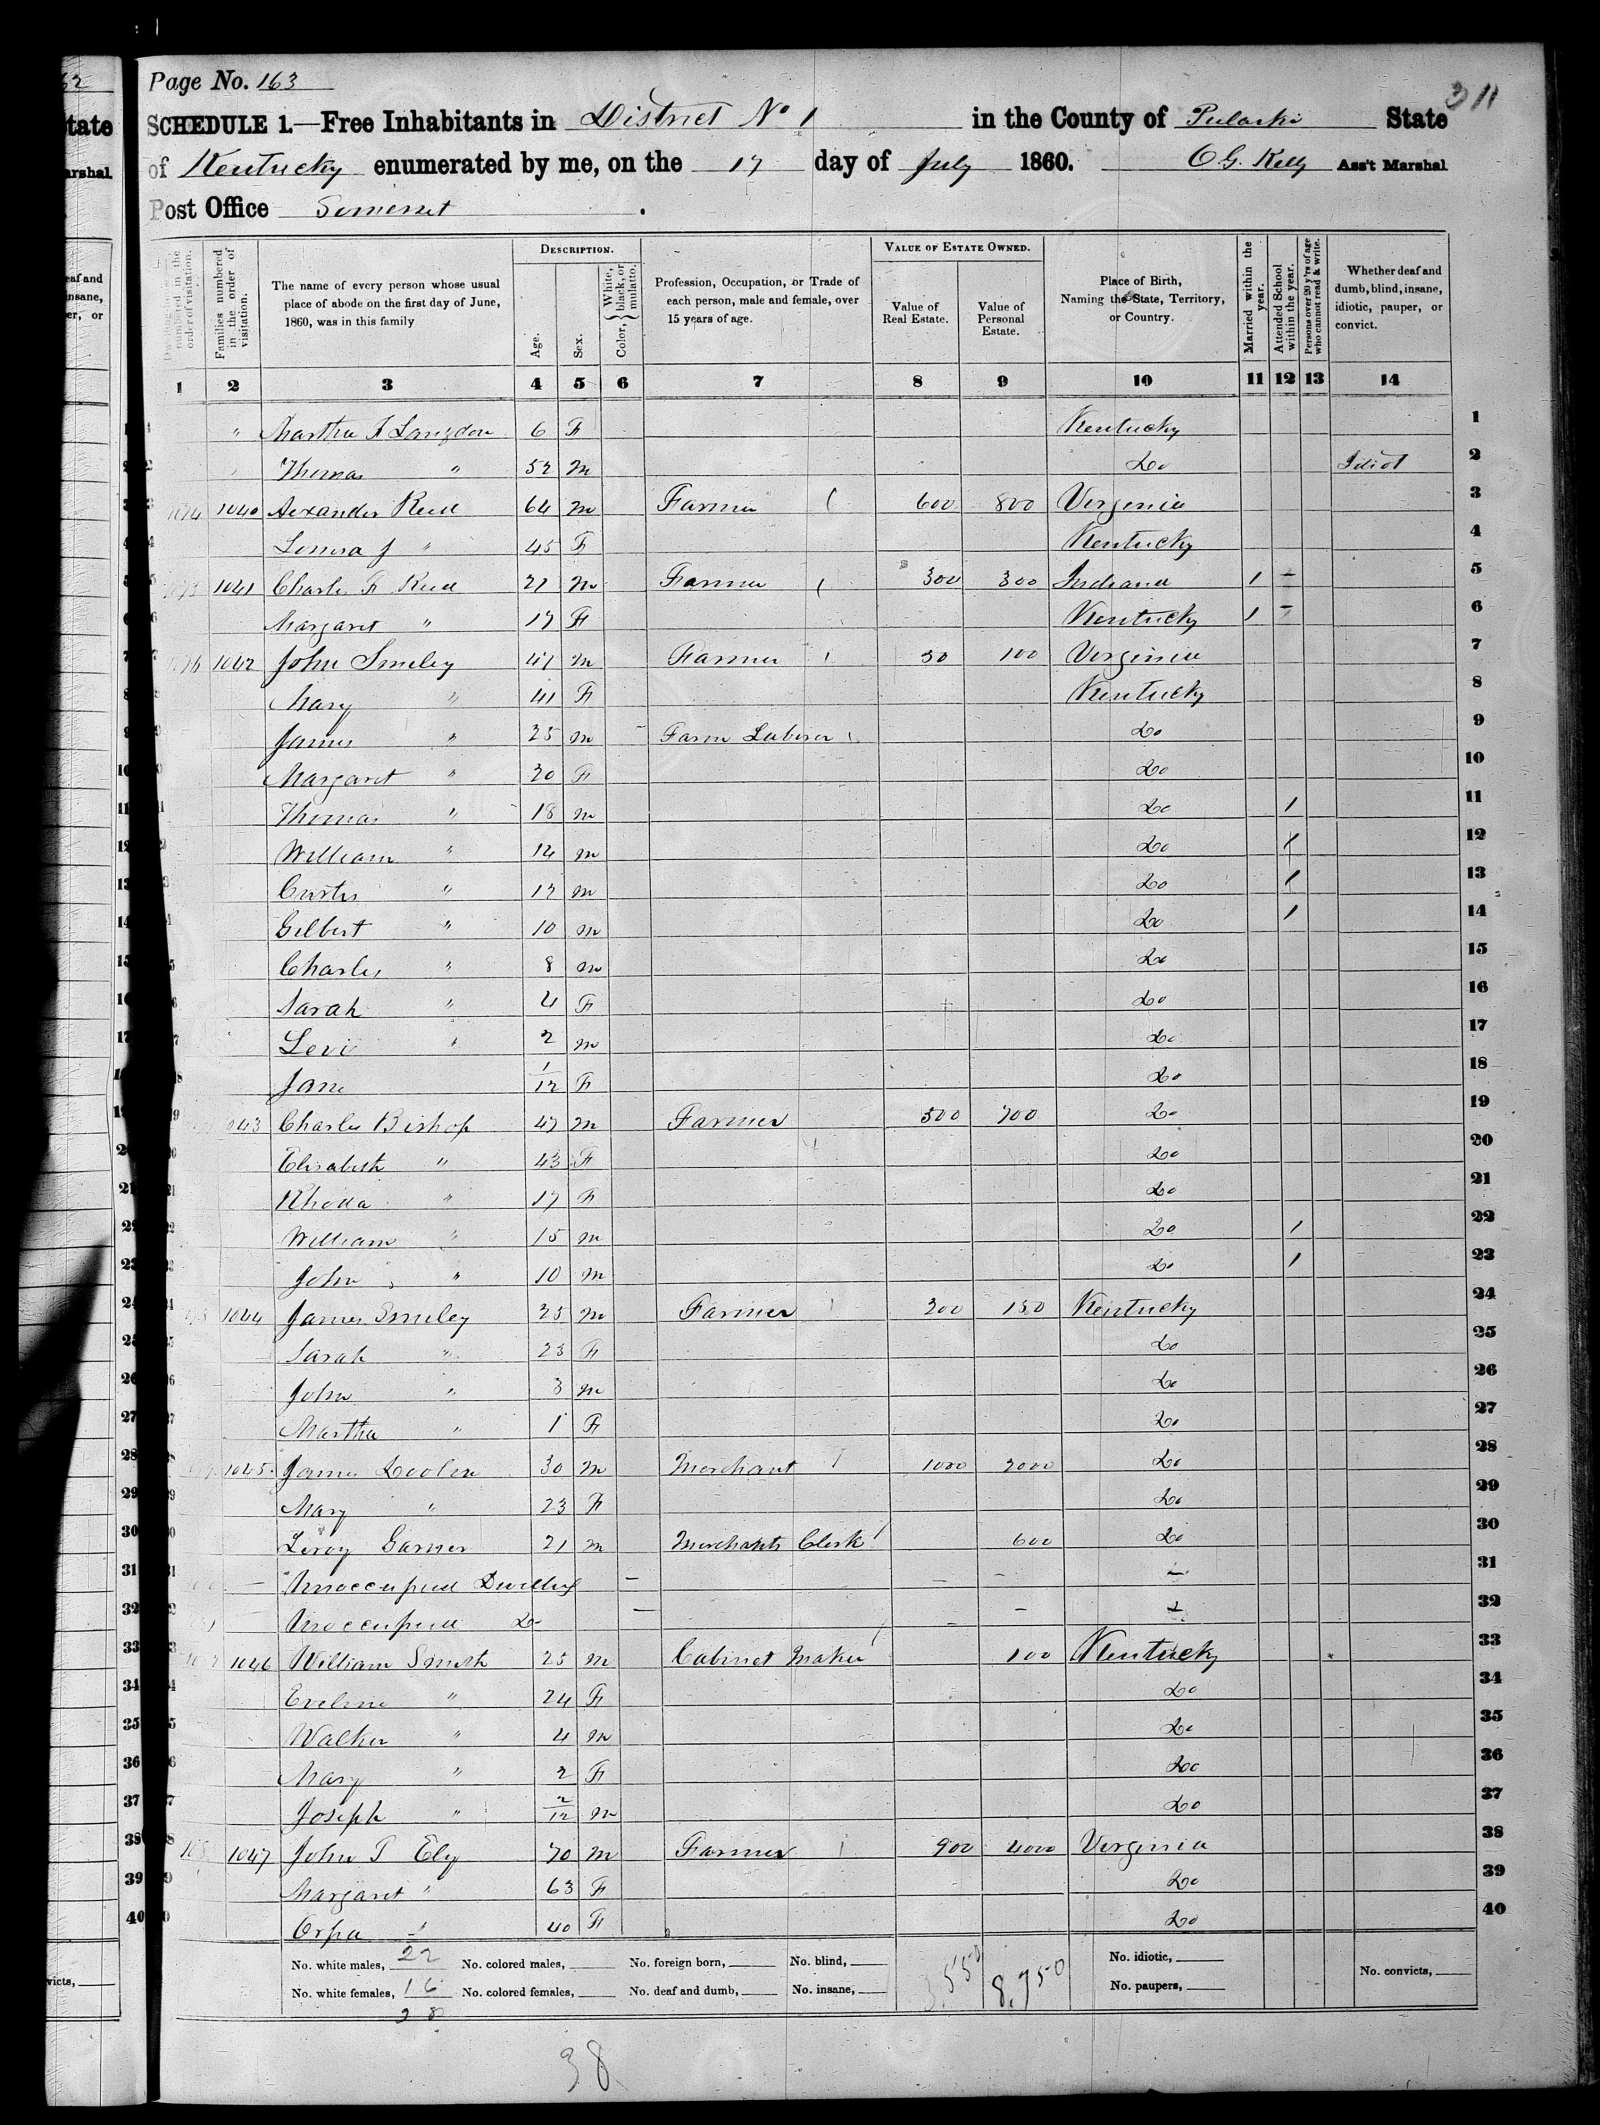 Page No. 163
311
SCHEDULE 1.—Free Inhabitants in District No 1 in the County of Pulaski State
of Kentucky enumerated by me, on the 17 day of July 1860. O.G. Kelly Ass't Marshal
Post Office Somerset
DESCRIPTION. VALUE OF ESTATE OWNED.
Dwelling-houses numbered in the order of visitation.
Families numbered in the order of visitation.
The name of every person whose usual place of abode on the first day of June, 1860, was in this family
Age.
Sex.
Color, { White, black, or mulatto.
Profession, Occupation, or Trade of each person, male and female, over 15 years of age.
Value of Real Estate.
Value of Personal Estate.
Place of Birth, Naming the State, Territory, or Country.
Married within the year.
Attended School within the year.
Persons over 20 y'rs of age who cannot read & write.
Whether deaf and dumb, blind, insane, idiotic, pauper, or convict.
1 2 3 4 5 6 7 8 9 10 11 12 13 14
" Martha F Langdon 6 F Kentucky 1
Thomas " 52 M Do Idiot 2
1040 Alexander Reed 64 M Farmer 600 800 Virginia 3
J " 45 F Kentucky 4
1041 Charles F Reed 21 M Farmer 300 300 Indiana 1 5
Margaret " 17 F Kentucky 1 6
1042 John Smiley 47 M Farmer 50 100 Virginia 7
Mary " 41 F Kentucky 8
James " 25 M Farm Laborer Do 9
Margaret " 20 F Do 10
Thomas " 18 M Do 1 11
William " 14 M Do 1 12
Curtis " 12 M Do 1 13
Gilbert " 10 M Do 1 14
Charles " 8 M Do 15
Sarah " 4 F Do 16
Levi " 2 M Do 17
Jane 1/12 F Do 18
1043 Charles Bishop 47 M Farmer 500 700 Do 19
Elizabeth " 43 F Do 20
Rhoda " 17 F Do 21
William " 15 M Do 1 22
John " 10 M Do 1 23
1044 James Smiley 25 M Farmer 200 150 Kentucky 24
Sarah " 23 F Do 25
John " 3 M Do 26
Martha " 1 F Do 27
1045 James Doolin 30 M Merchant 1000 2000 Do 28
Mary " 23 F Do 29
Leroy Garner 21 M Merchants Clerk 600 Do 30
— Unoccupied Dwelling — — — — 31
— Unoccupied Do — — — 32
1046 William Smith 25 M Cabinet Maker 100 Kentucky 33
Eveline " 24 F Do 34
Walker " 4 M Do 35
Mary " 2 F Do 36
Joseph " 2/12 M Do 37
1047 John T Ely 70 M Farmer 900 4000 Virginia 38
Margaret " 63 F Do 39
Orpa " 40 F Do 40
No. white males, 22 No. colored males, No. foreign born, No. blind, 3,550 8,750 No. idiotic,
No. white females, 16 No. colored females, No. deaf and dumb, No. insane, No. paupers, No. convicts,
38
38